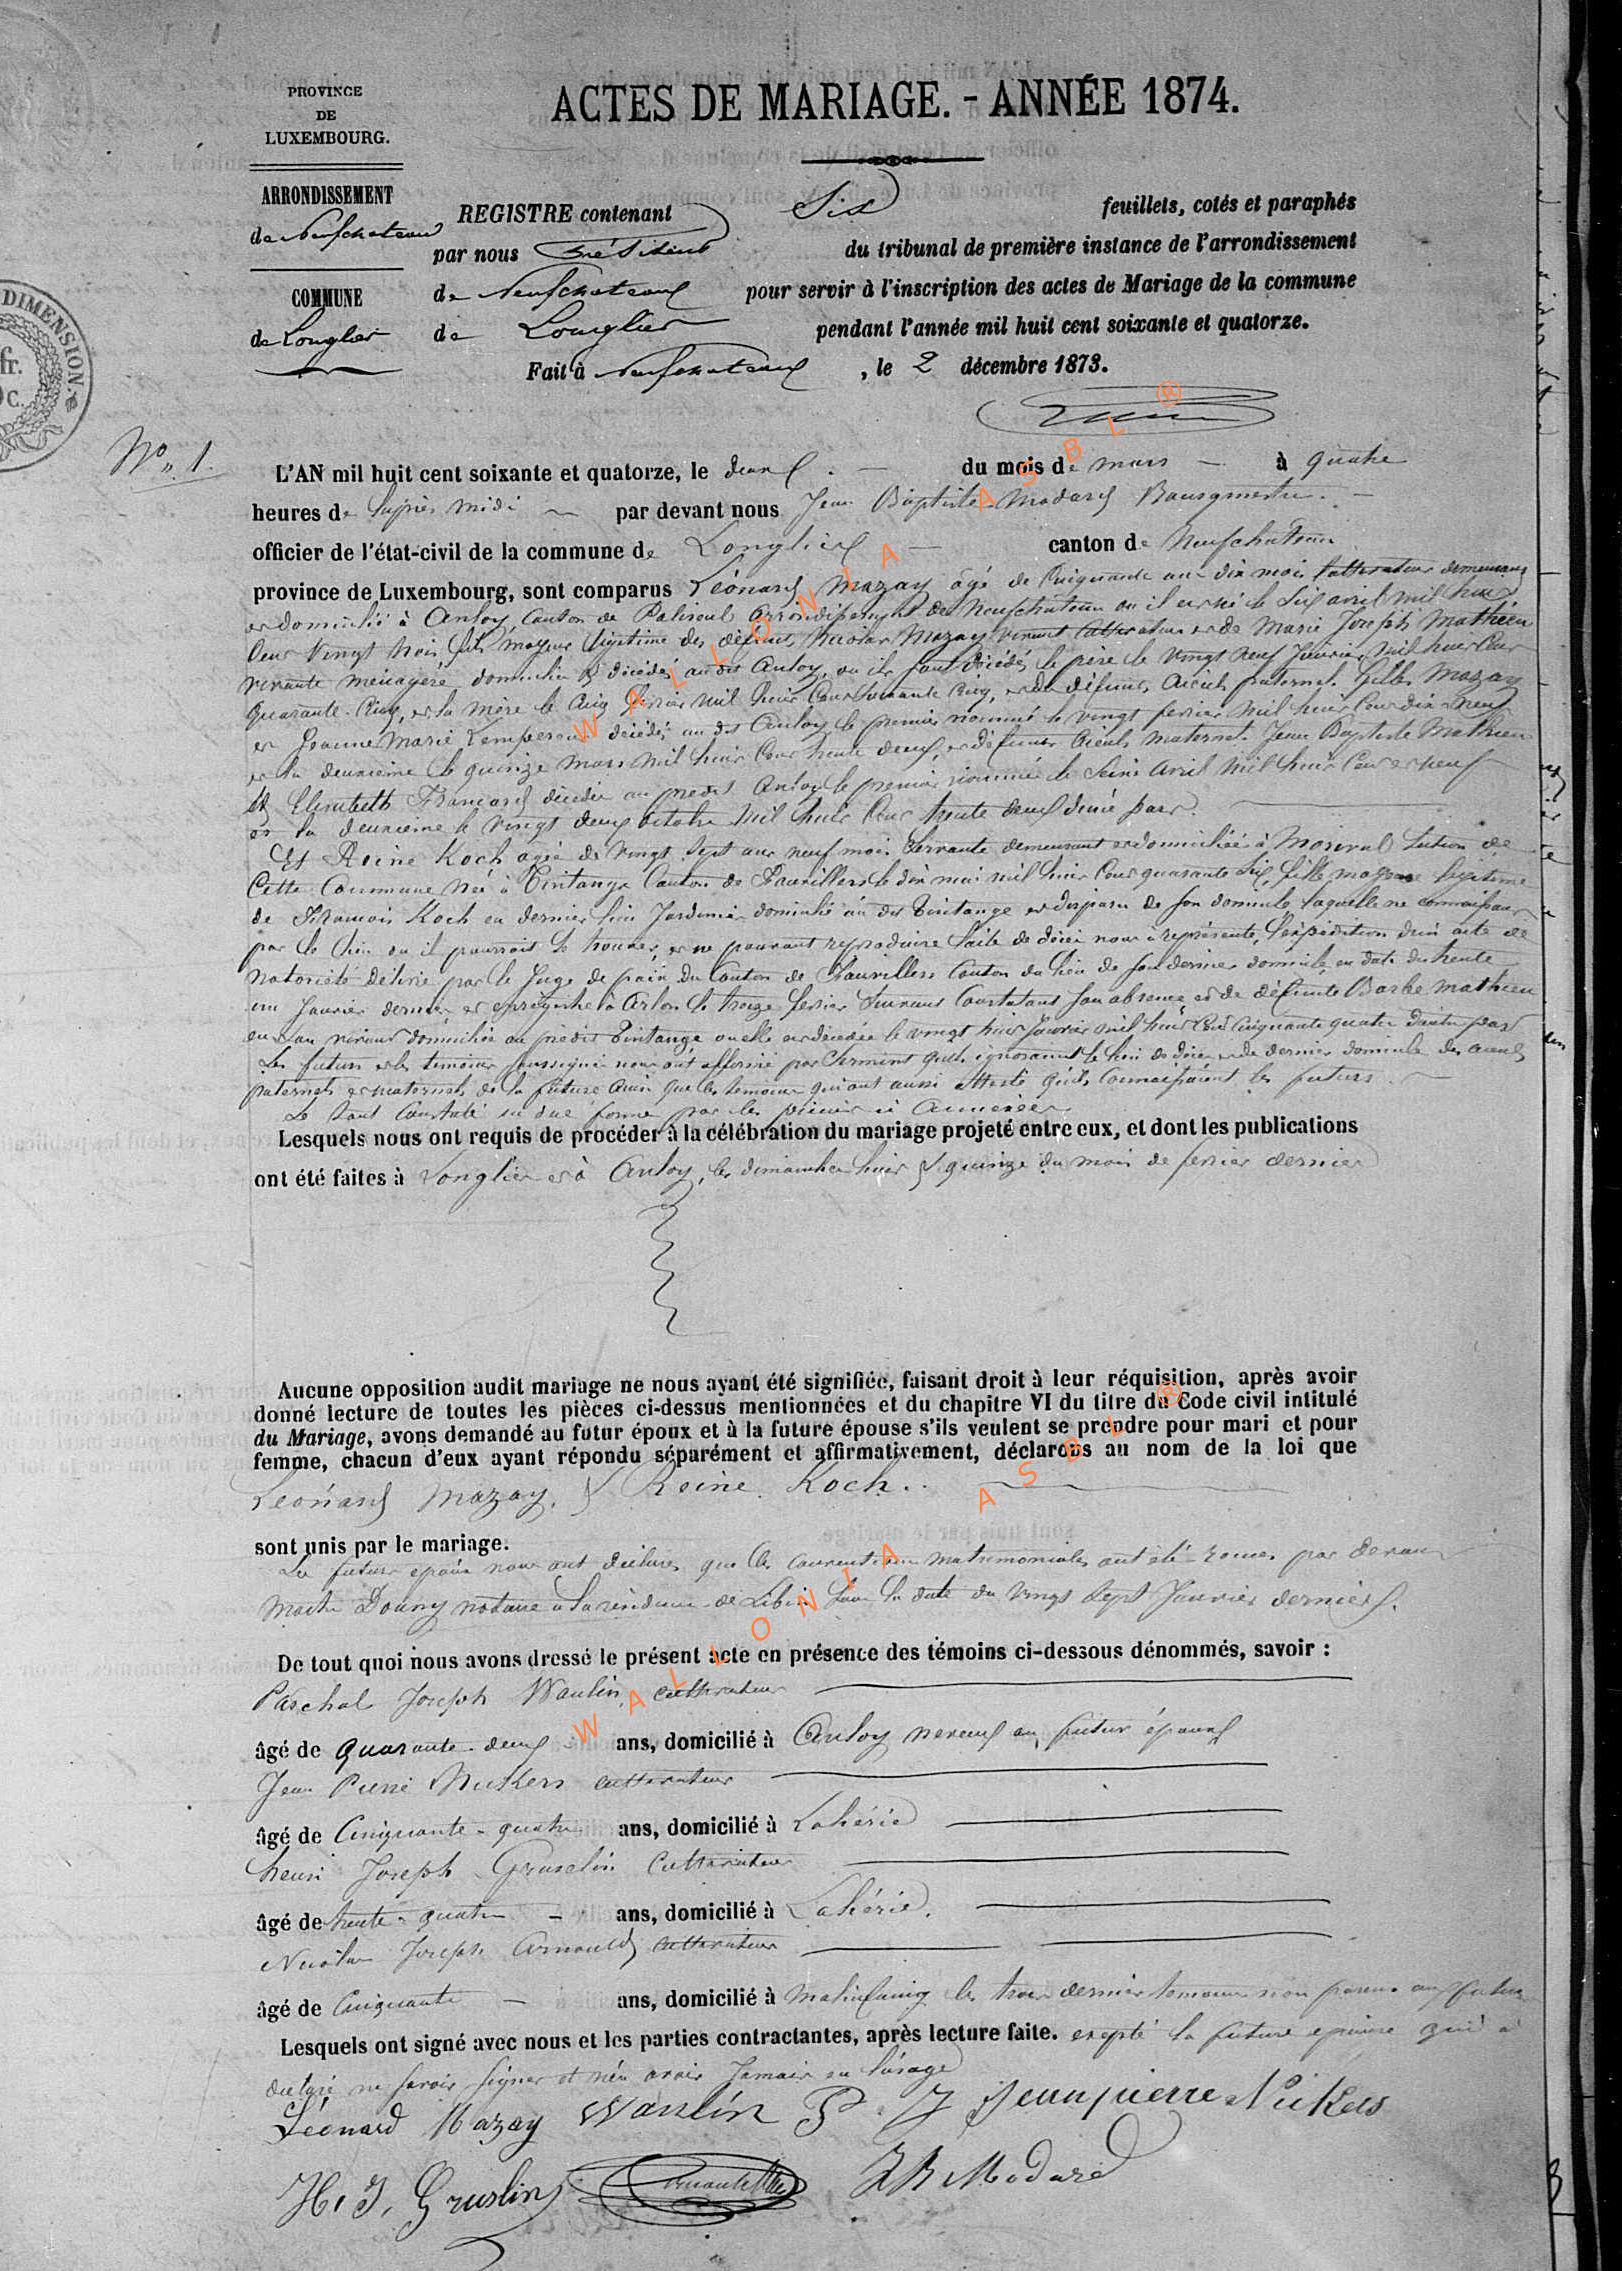 PROVINCE
DE
LUXEMBOURG.
ACTES DE MARIAGE. - ANNÉE 1874.
ARRONDISSEMENT
de Neufchateau
COMMUNE
de Longlier
DIMENSION.
fr.
c.
REGISTRE contenant Six feuillets, cotés et paraphés
par nous Président du tribunal de première instance de l'arrondissement
de Neufchateau pour servir à l'inscription des actes de Mariage de la commune
de Longlier pendant l'année mil huit cent soixante et quatorze.
Fait à Neufchateau, le 2 décembre 1873.
No. 1.
L'AN mil huit cent soixante et quatorze, le deux du mois de mars à quatre
heures de l'après midi par devant nous Jean Baptiste Modard Bourgmestre
officier de l'état-civil de la commune de Longlier canton de Neufchateau
province de Luxembourg, sont comparus Léonard Mazay âgé de Cinquante ans dix mois Cultivateur demeurant
et domicilié à Anloy Canton de Paliseul Arrondissement de Neufchateau où il est né le Six avril mil huit
Cent Vingt trois fils majeur légitime des défunts Nicolas Mazay vivant Cultivateur et de Marie Joseph Mathieu
vivante ménagère domiciliés et décédés au dit Anloy, où ils sont décédés le père le vingt neuf Janvier mil huit Cent
quarante Cinq, et la mère le Cinq février mil huit Cent soixante Cinq, et des défunts Aïeuls paternels Gilles Mazay
et Jeanne Marie décédés au dit Anloy le premier nommé le vingt février mil huit Cent dix neuf
et la deuxième le quinze mars mil huit Cent trente deux, et défunts Aïeuls maternels Jean Baptiste Mathieu
et Elisabeth François décédés au predit Anloy le premier nommé le Seize avril mil huit Cent et neuf
et la deuxième le vingt deux octobre mil huit Cent trente deux d'une part.
Et Reine Koch agée de vingt Sept ans neuf mois Servante demeurant et domiciliée à Morival Section de
Cette Commune Née à Tintange Canton de Fauvillers le dix mai mil huit Cent quarante Six, fille majeure légitime
de François Koch en dernier lieu Jardinier domicilié au dit Tintange et disparu de son domicile laquelle ne connaissant
pas le lieu où il pourrait se trouver, et ne pouvant reproduire l'acte de décès nous a représenté, l'expédition d'un acte de
Notoriété délivré par le Juge de paix du Canton de Fauvillers Canton du lieu de son dernier domicile en date du trente
un Janvier dernier et enregistré à Arlon le treize février Suivant Constatant son absence et de défunte Barbe Mathieu
en son vivant domiciliée au prédit Tintange où elle est décédée le vingt huit Janvier mil huit Cent Cinquante quatre d'autre part
Les futurs et les temoins soussignés nous ont affirmé par Serment qu'ils ignoraient le lieu de décès et de dernier domicile des aïeuls
paternels et maternels de la future Ainsi que les temoins qui ont aussi attesté qu'ils Connaissaient les futurs
Le tout Constaté en due forme par les pièces ci Annexées
Lesquels nous ont requis de procéder à la célébration du mariage projeté entre eux, et dont les publications
ont été faites à Longlier et à Anloy, les dimanches huit et quinze du mois de fevrier dernier
Aucune opposition audit mariage ne nous ayant été signifiée, faisant droit à leur réquisition, après avoir
donné lecture de toutes les pièces ci-dessus mentionnées et du chapitre VI du titre du Code civil intitulé
du Mariage, avons demandé au futur époux et à la future épouse s'ils veulent se prendre pour mari et pour
femme, chacun d'eux ayant répondu séparément et affirmativement, déclarons au nom de la loi que
Léonard Mazay. et Reine Koch.
sont unis par le mariage.
Les futurs époux nous ont déclarés que les Conventions Matrimoniales ont été recues par devant
Maitre Douny notaire à la résidence de Libin Sous la date du vingt Sept Janvier dernier.
De tout quoi nous avons dressé le présent acte en présence des témoins ci-dessous dénommés, savoir :
Paschal Joseph Waulin, cultivateur
âgé de quarante-deux ans, domicilié à Anloy neveux au futur époux
Jean Pierre Nickers cultivateur
âgé de Cinquante-quatre ans, domicilié à Lahérie
henri Joseph Gruselin Cultivateur
âgé de trente-quatre ans, domicilié à Lahérie.
Nicolas Joseph Arnould cultivateur
âgé de Cinquante ans, domicilié à les trois dernier temoins non parent aux futurs
Lesquels ont signé avec nous et les parties contractantes, après lecture faite. excepté la future épouse qui a
déclaré ne savoir signer et n'en avoir Jamais eu l'usage
Léonard Mazay Waulin P J Jean pierre Nickers
H. J. Gruslin JB Modard
WALLONIA ASBL ®
WALLONIA ASBL ®